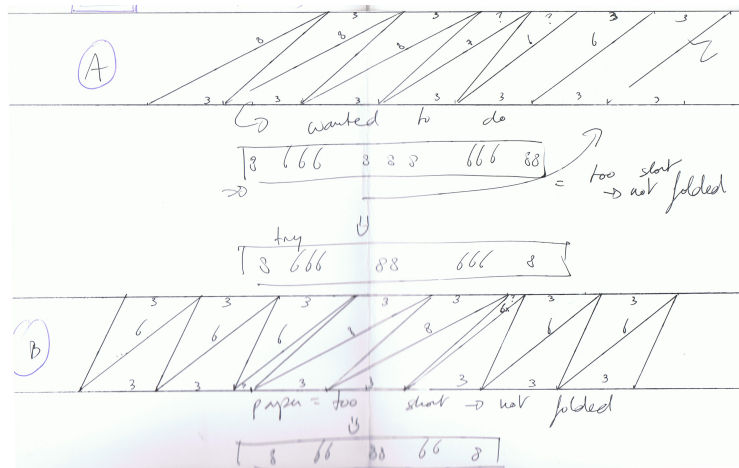 3 3 3 ? ? 3 3
8 8 8 7 6 6
A
3 3 3 3 3 3
wanted to do
8 666 888 666 88
= too short
→ not folded
try
8 666 88 666 8
3 3 3 3 ? 3 3
6 6 6 8 6 6
B
3 3 3 3 3 3
paper = too short → not folded
8 66 88 66 8